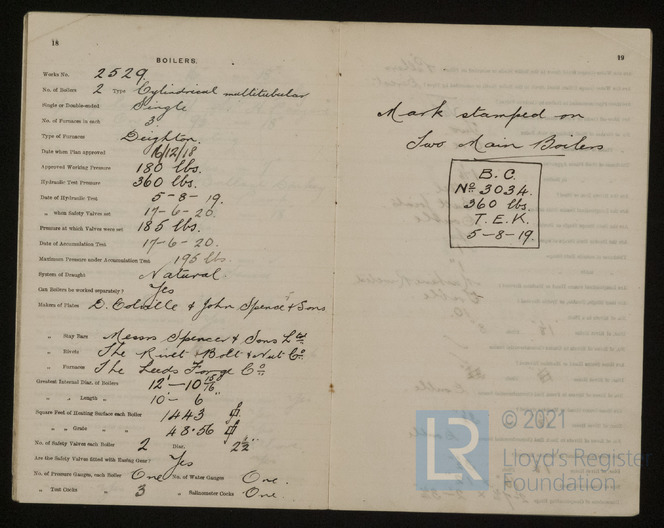 18
BOILERS.
Works No. 2529
No. of Boilers 2 Type Cylindrical multitubular
Single or Double-ended Single
No. of Furnaces in each 3
Type of Furnaces Deighton.
Date when Plan approved 16/12/18
Approved Working Pressure 180 lbs.
Hydraulic Test Pressure 360 lbs.
Date of Hydraulic Test 5-8-19.
„ when Safety Valves set 17-6-20.
Pressure at which Valves were set 185 lbs.
Date of Accumulation Test 17-6-20.
Maximum Pressure under Accumulation Test 195 lbs
System of Draught Natural.
Can Boilers be worked separately? Yes
Makers of Plates D. Colville & John Spencer & Sons
„ Stay Bars Messrs Spencer & Sons Ltd
„ Rivets The Rivet Bolt & Nut Co.
„ Furnaces The Leeds Forge Co.
Greatest Internal Diam. of Boilers 12'-10 15/16"
„ „ Length „ 10'- 6"
Square Feet of Heating Surface each Boiler 1443
„ „ Grate „ „ 48.56
No. of Safety Valves each Boiler 2 Diam. 2½"
Are the Safety Valves fitted with Easing Gear? Yes
No. of Pressure Gauges, each Boiler One No. of Water Gauges One.
„ Test Cocks „ 3 „ Salinometer Cocks One
19
Mark stamped on
Two Main Boilers
B.C.
No. 3034.
360 lbs.
T.E.K.
5-8-19.
LR
© 2021
Lloyd's Register
Foundation